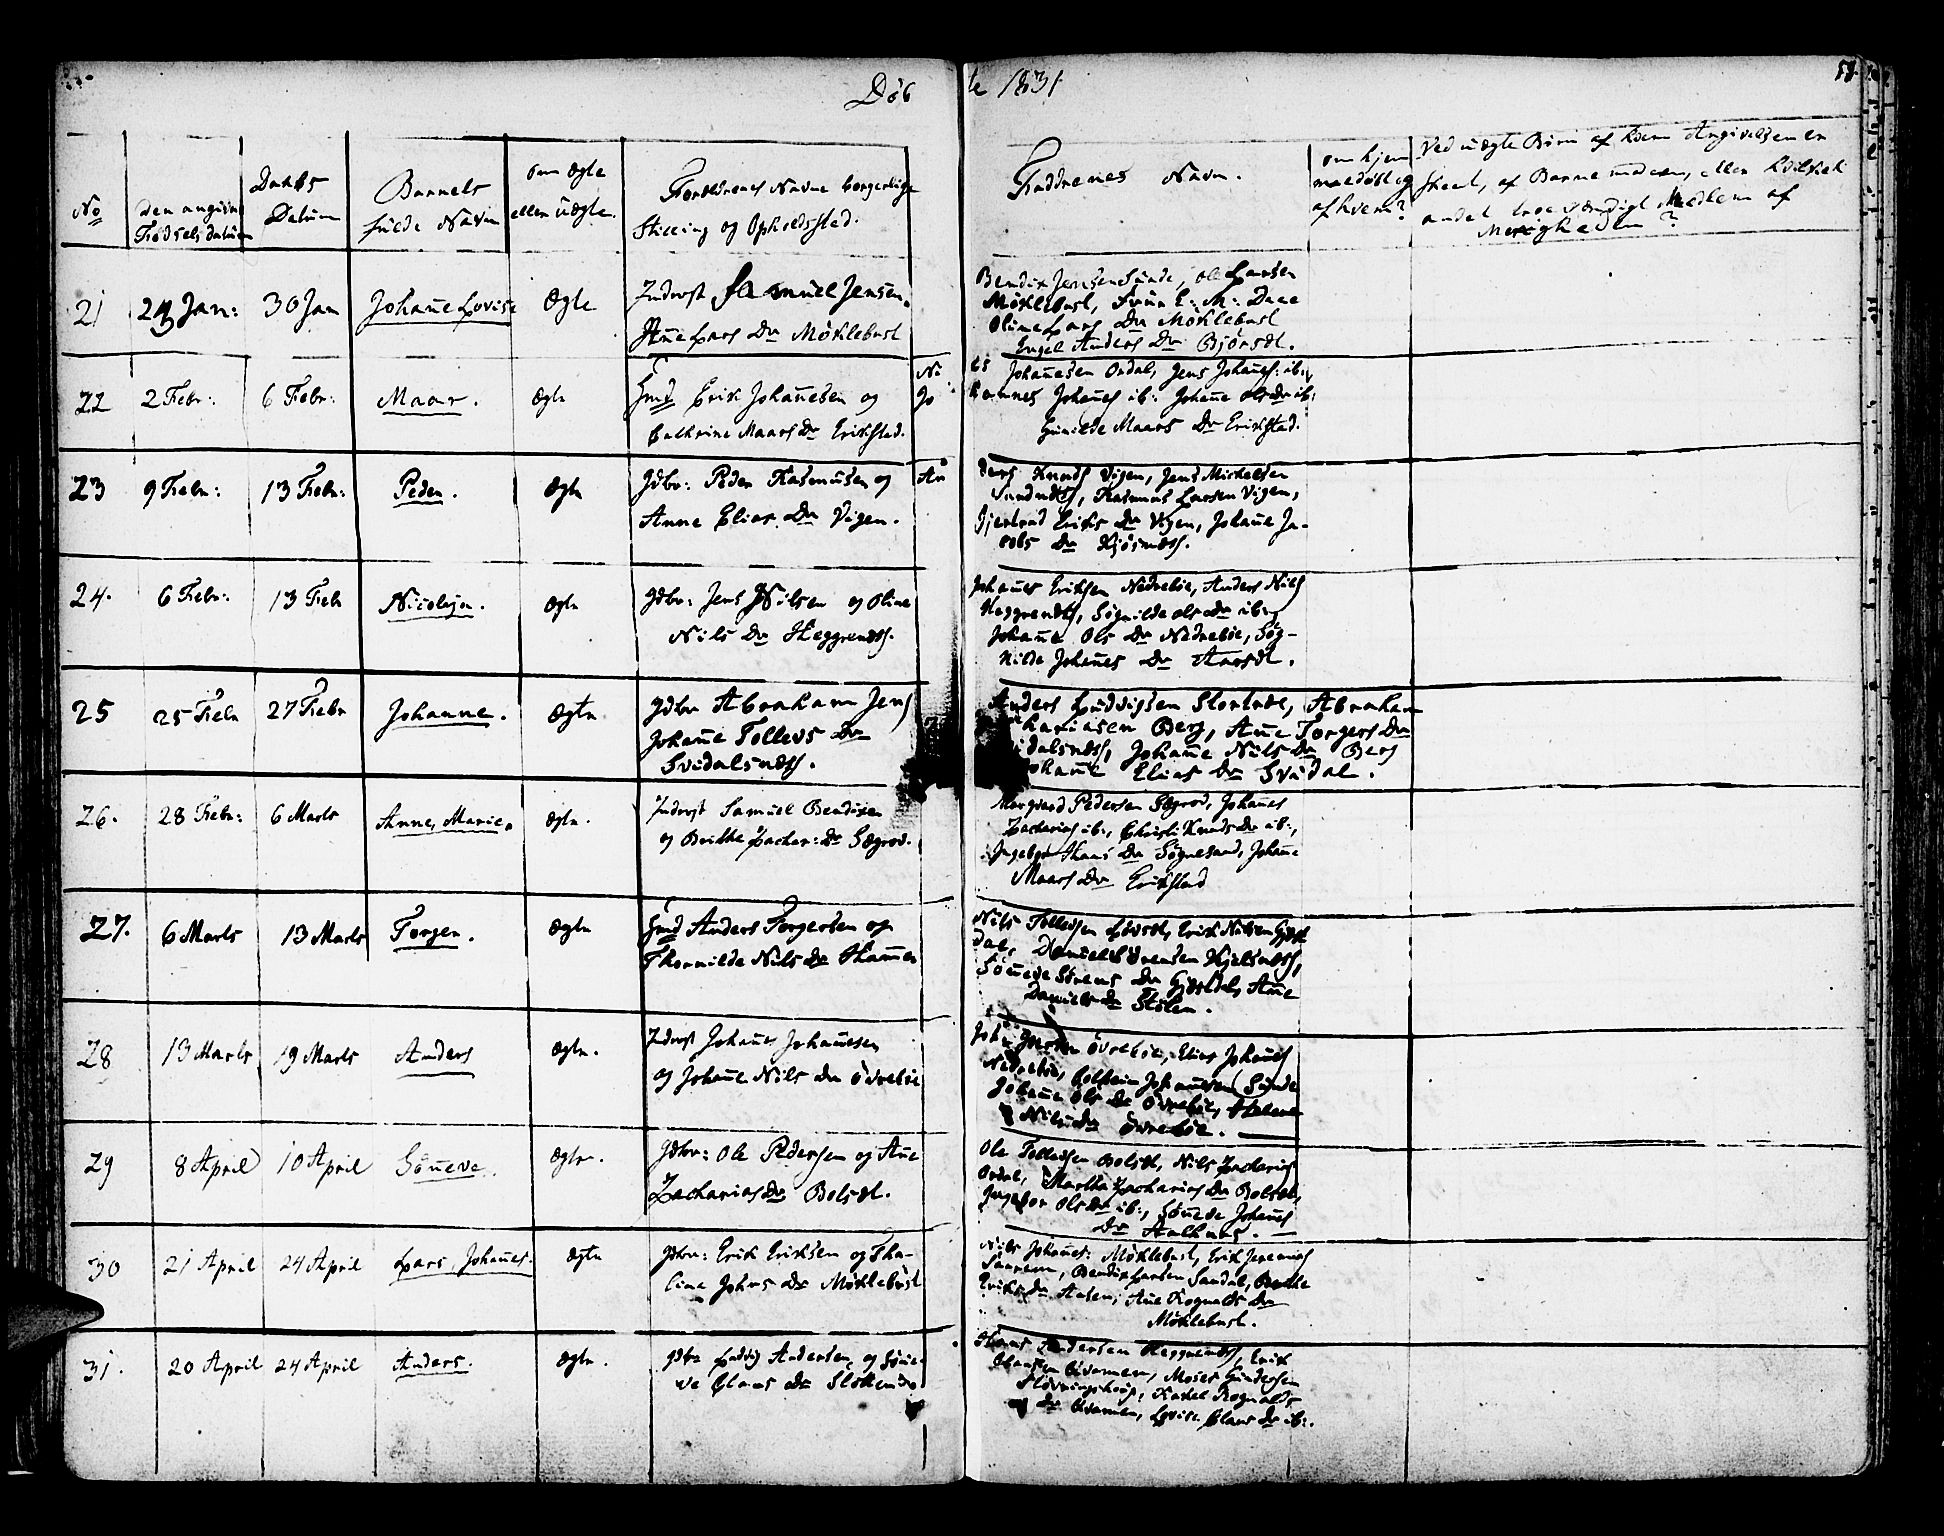 Døbte 1831
No
den angivne
Fødselsdatum
Daabs
Datum
Barnets
fulde Navn
om ægte
eller uægte.
Forældrenes Navne borgerlige
Stilling og Opholdssted.
Faddrenes Navn.
om hjem
mædøbt og
af hvem?
Ved uægte Børn af hvem Angivelsen er
skeet, af Barnemoderen, eller hvilket
andet troeværdigt Medlem af
Menigheden?
21 Jan: 30 Jan Johanne Lovise Ægte
Inderst Samuel Jensen,
Anne Lars Dr Möklebust
Bendix Jensen Sunde, Ole Larsen
Möklebust,
Oline Lars Dr Möklebust
Engel Anders Dr Bjørsdt.
22 2 Febr: 6 Febr: Maar. ægte
Gmd Erik Johannesen og
Cathrine Maars Dr Erikstad.
Nils Johannesen Ordal, Jens Johanes: ib:,
Johannes Johanes ib: Johanne Ols Dr ib:
Gunilde Maars Dr Erikstad.
23 9 Febr: 13 Febr: Peder. ægte
Gdbr: Peder Rasmusen og
Anne Elias Dr Vigen.
Anders Knuds Vigen, Jens Michelsen
Rasmus Larsen Vigen,
Gjertrud Eriks Dr Vigen, Johanne Ja-
cobs Dr Kjøsnæs.
24. 6 Febr: 13 Febr Nicolsja. ægte
Gdbr: Jens Nilsen og Oline
Nils Dr Heggrenæs.
Johanes Eriksen Nedrebøe, Anders Nils
Heggrendts, Søgnilde Ols Dr ib:,
Johanne Ols Dr Nedrebøe, Søg-
nilde Johanes Dr Aarsdt.
25 25 Febr 27 Febr Johanne. ægte
Gdbr Abraham Jens
Johanne Tollevs Dr
Svidalsnæs.
Anders Ludvigsen Abraham
Berg, Anne Torgers Dr
Johanne Nils Dr Berg
Johanne Elias Dr Svidal.
26. 28 Febr: 6 Marts Anne, Marie. ægte.
Inderst Samuel Bendixen
og Brithe Zachar: Dr Sægrov.
Margvard Pedersen Sægrov, Johanes
Zacharias ib:, Christi Knuds Dr ib:,
Ingebor Hans Dr Søgnesand, Johanne
Maars Dr Erikstad
27. 6 Marts 13 Marts Torger. ægte
Gmd Anders Torgersen og
Thornilde Nils Dr Hammer
Nils Tollevsen Erik Nilsen Gjes
dal, Daniel Sörensen Kjelsnæs,
Sönneve Sörens Dr Gjesdal, Anne
Daniels Dr Stölen.
28 13 Marts 19 Marts Anders ægte.
Inderst Johanes Johannesen
og Johanne Nils Dr Övrebøe
Övrebøe, Elias Johanes
Nedrebøe, Johannesen Sunde
Johanne Ols Dr Övrebøe, Helene
Nils Dr Övrebøe.
29 8 April 10 April Sönneve. ægte.
Gdbr: Ole Pedersen og Anne
Zacharias Dr Bolsdt.
Ole Tollevsen Bolsdt, Nils Zacharias
Ordal, Martha Zacharias Dr Bolsdt,
Ingebor Ols Dr ib:, Sönneve Johanes
Dr Aalhus.
30 21 April 24 April Lars, Johanes. ægte
Gdbr: Erik Eriksen og Tha-
line Johns Dr Möklebust
Nils Johanes: Möklebust, Erik Jeremias
Bendix Larsen Sandal, Berthe
Eriks Dr Aasen, Anne Rognalds Dr
Möklebust.
31. 20 April 24 April Anders. ægte.
Gdbr Ludvig Andersen, og Sönne-
ve Claus Dr
Hans Andersen Heggrenæs, Erik
Clausen Qvamen, Moses Gundersen
Karel Rognalds
Dr Qvamen, Lovise Claus Dr ib:.